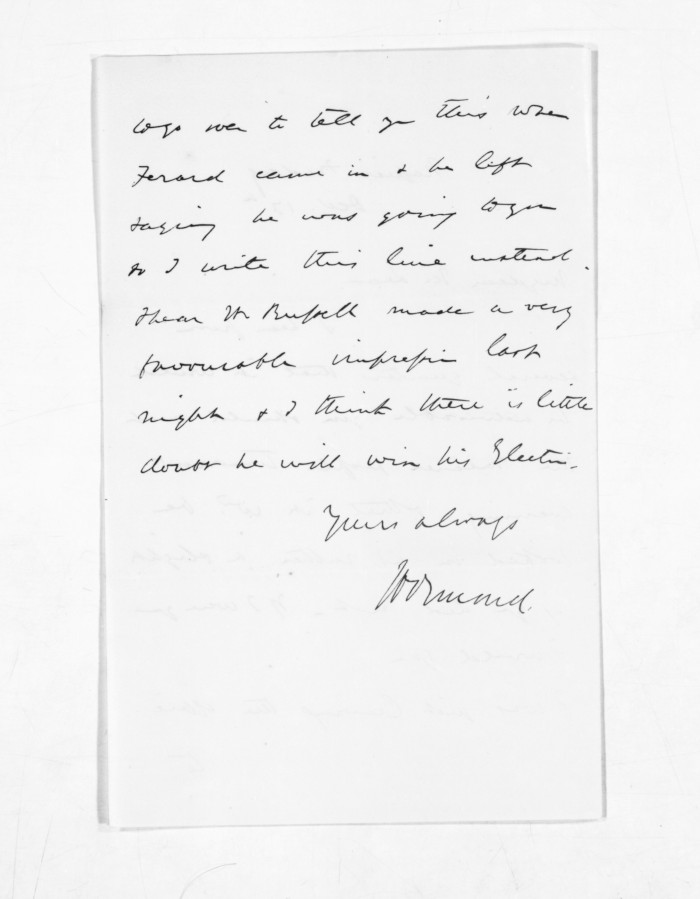 to go over to tell you this when
Ferard came in & he left
saying he was going to you
so I write this line instead.
I hear Mr Russell made a very
favourable impression last
night & I think there is little
doubt he will win his Election.
Yours always
JDOrmond.